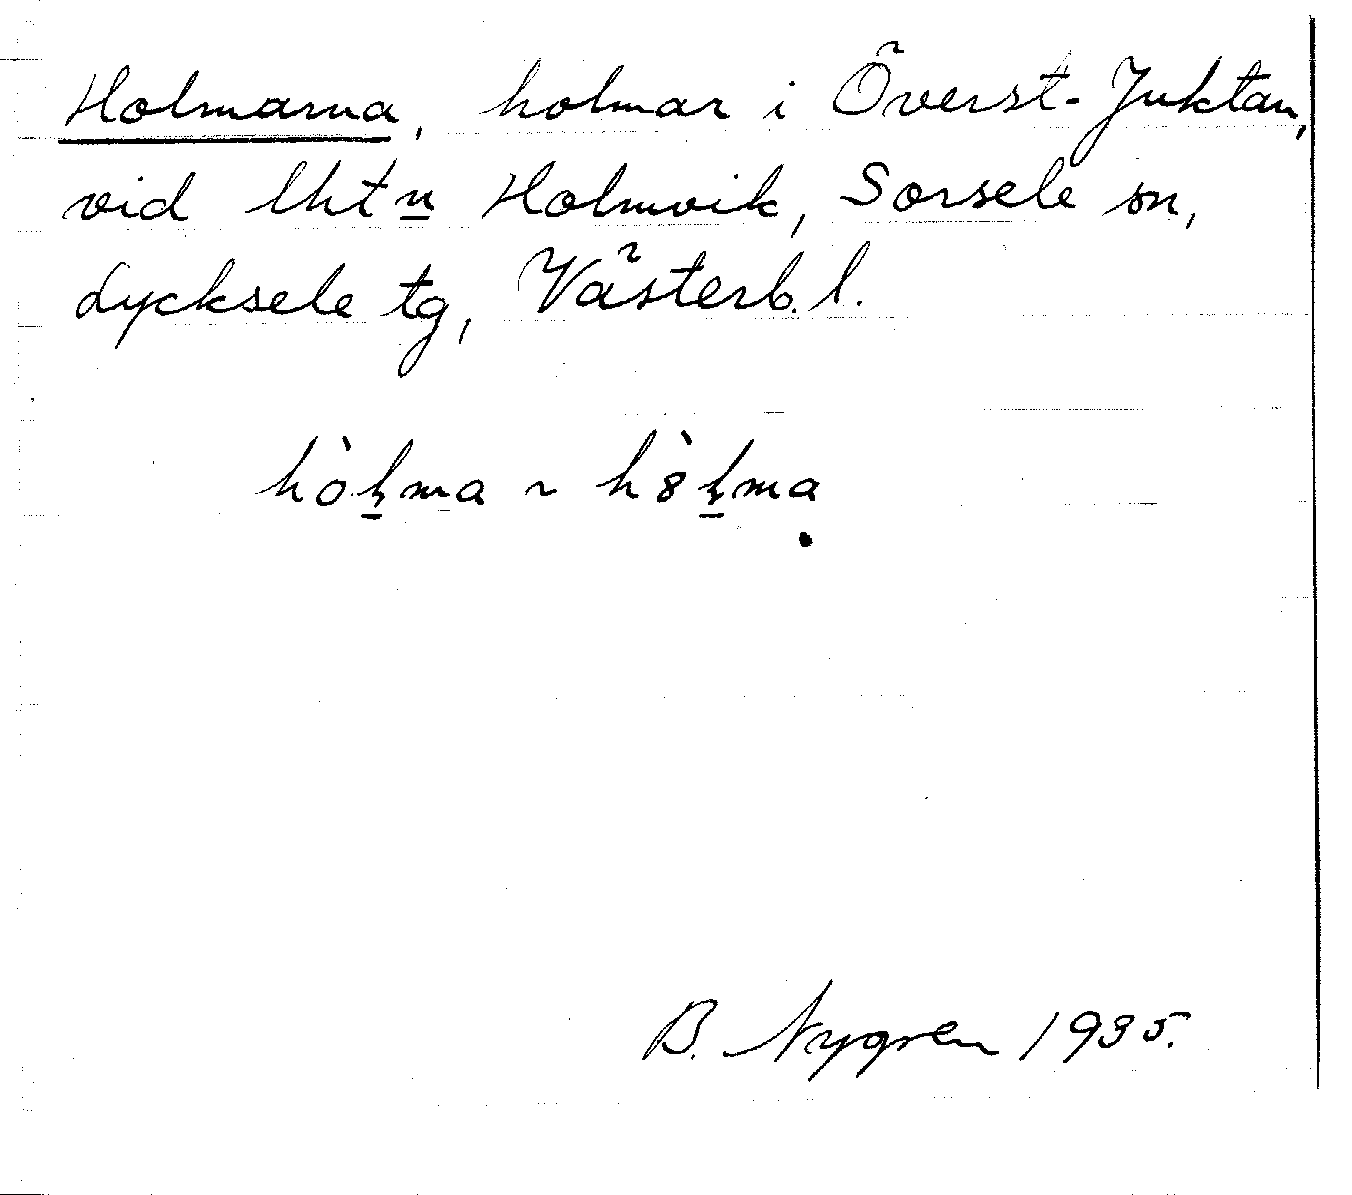 Holmarna, holmar i Överst-Juktan,
vid lhtn Holmvik, Sorsele sn,
Lycksele tg, Västerb. l.
B. Nygren 1935.